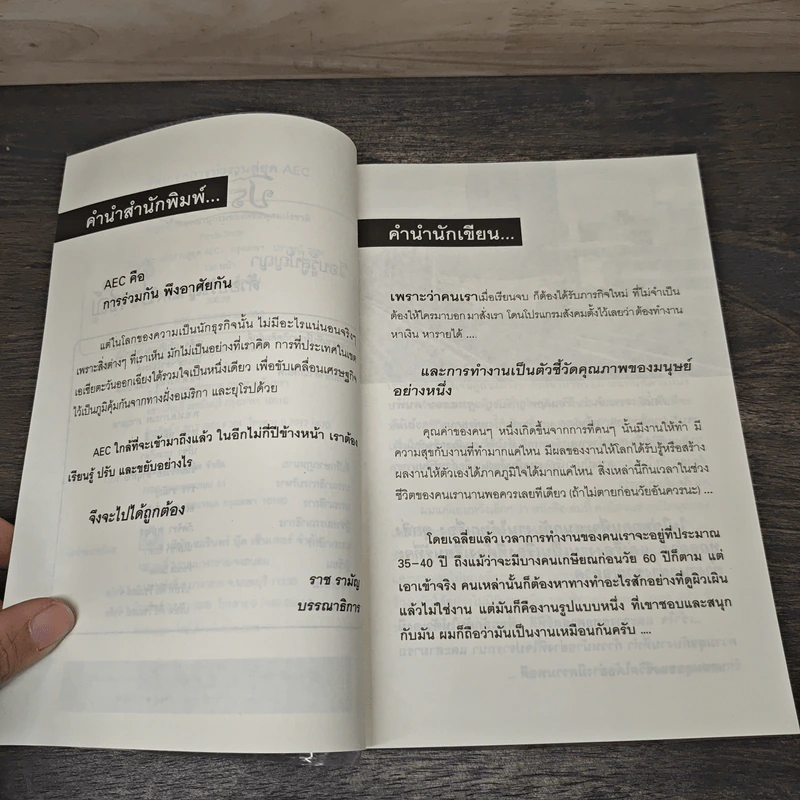 คำนำสำนักพิมพ์...
AEC คือ
การร่วมกัน พึงอาศัยกัน
แต่ในโลกของความเป็นนักธุรกิจนั้น ไม่มีอะไรแน่นอนจริงๆ
เพราะสิ่งต่างๆ ที่เราเห็น มักไม่เป็นอย่างที่เราคิด การที่ประเทศในเขต
เอเชียตะวันออกเฉียงใต้รวมใจเป็นหนึ่งเดียว เพื่อขับเคลื่อนเศรษฐกิจ
ไว้เป็นภูมิคุ้มกันจากทางฝั่งอเมริกา และยุโรปด้วย
AEC ใกล้ที่จะเข้ามาถึงแล้ว ในอีกไม่กี่ปีข้างหน้า เราต้อง
เรียนรู้ ปรับ และขยับอย่างไร
จึงจะไปได้ถูกต้อง
ราช รามัญ
บรรณาธิการ
คำนำนักเขียน...
เพราะว่าคนเราเมื่อเรียนจบ ก็ต้องได้รับภารกิจใหม่ ที่ไม่จำเป็น
ต้องให้ใครมาบอก มาสั่งเรา โดนโปรแกรมสังคมตั้งไว้เลยว่าต้องทำงาน
หาเงิน หารายได้ ....
และการทำงานเป็นตัวชี้วัดคุณภาพของมนุษย์
อย่างหนึ่ง
คุณค่าของคนๆ หนึ่งเกิดขึ้นจากการที่คนๆ นั้นมีงานให้ทำ มี
ความสุขกับงานที่ทำมากแค่ไหน มีผลของงานให้โลกได้รับรู้หรือสร้าง
ผลงานให้ตัวเองได้ภาคภูมิใจได้มากแค่ไหน สิ่งเหล่านี้กินเวลาในช่วง
ชีวิตของคนเรานานพอควรเลยทีเดียว (ถ้าไม่ตายก่อนวัยอันควรนะ) ...
โดยเฉลี่ยแล้ว เวลาการทำงานของคนเราจะอยู่ที่ประมาณ
35-40 ปี ถึงแม้ว่าจะมีบางคนเกษียณก่อนวัย 60 ปีก็ตาม แต่
เอาเข้าจริง คนเหล่านั้นก็ต้องหาทางทำอะไรสักอย่างที่ดูผิวเผิน
แล้วไม่ใช่งาน แต่มันก็คืองานรูปแบบหนึ่ง ที่เขาชอบและสนุก
กับมัน ผมก็ถือว่ามันเป็นงานเหมือนกันครับ ....